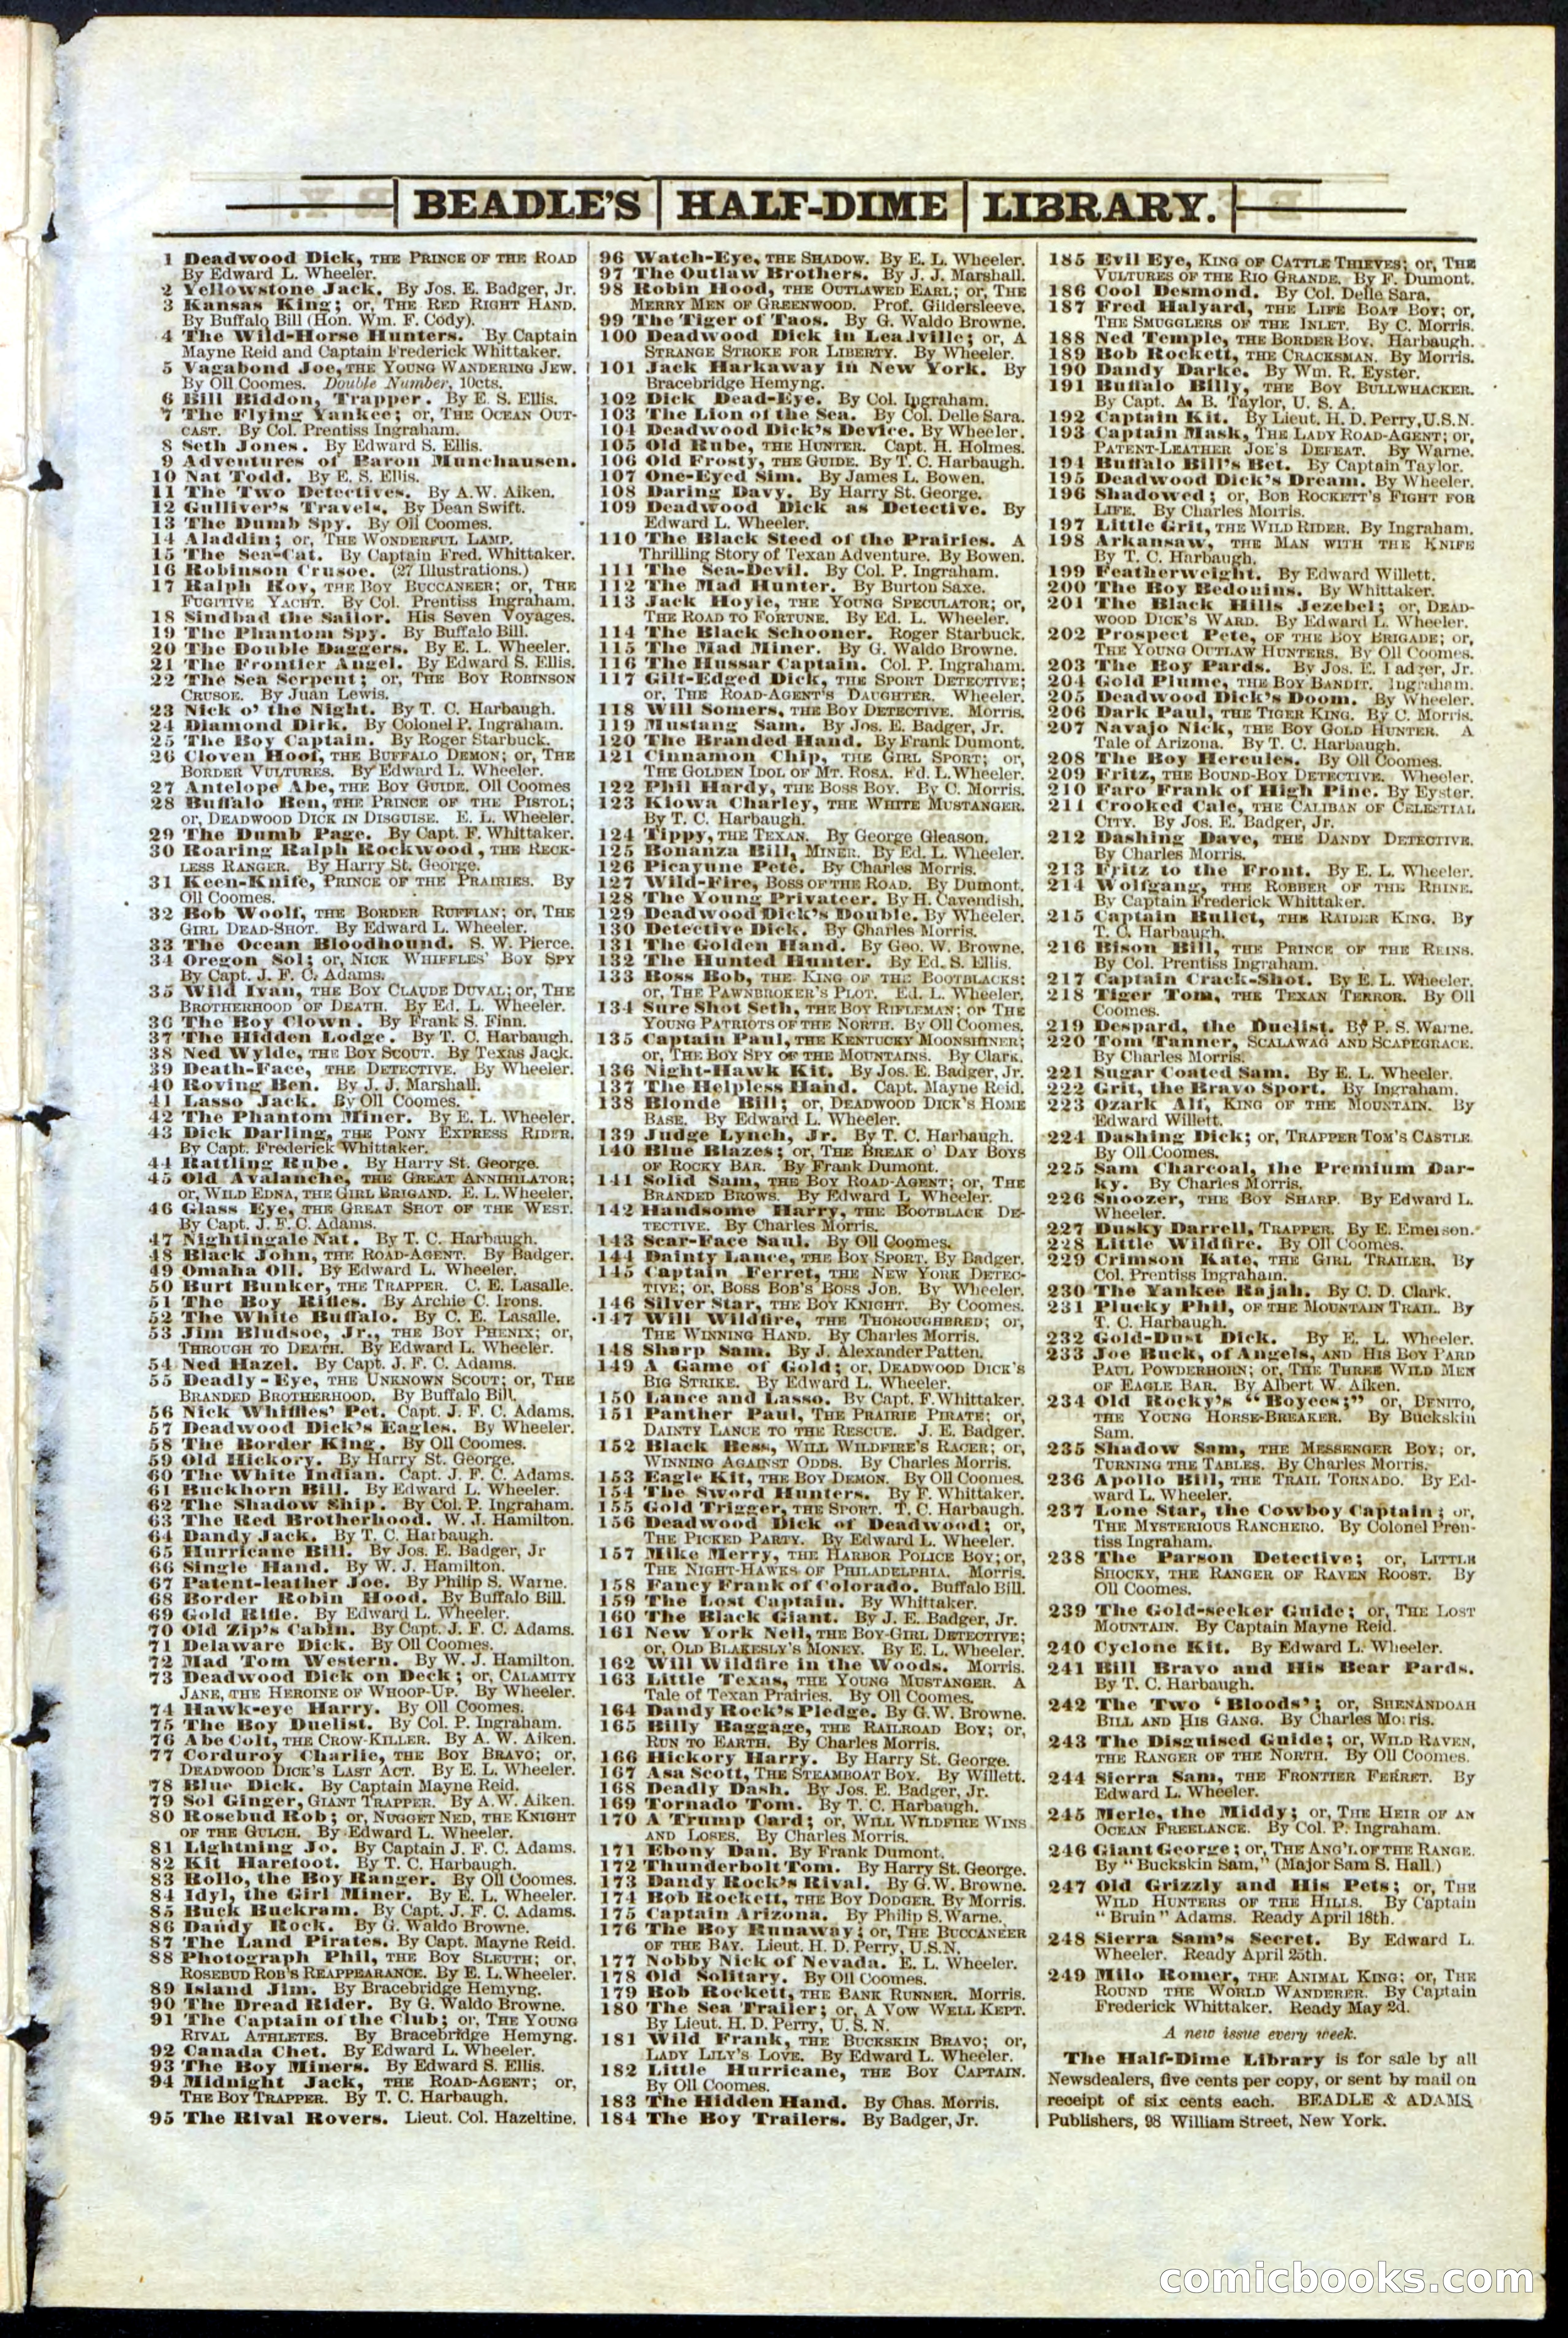 BEADLE'S HALF-DIME LIBRARY.
1 Deadwood Dick, THE PRINCE OF THE ROAD
By Edward L. Wheeler.
2 Yellowstone Jack. By Jos. E. Badger, Jr.
3 Kansas King; or, THE RED RIGHT HAND.
By Buffalo Bill (Hon. Wm. F. Cody).
4 The Wild-Horse Hunters. By Captain
Mayne Reid and Captain Frederick Whittaker.
5 Vagabond Joe, THE YOUNG WANDERING JEW.
By Oll Coomes. Double Number, 10cts.
6 Bill Biddon, Trapper. By E. S. Ellis.
7 The Flying Yankee; or, THE OCEAN OUT-
CAST. By Col. Prentiss Ingraham.
8 Seth Jones. By Edward S. Ellis.
9 Adventures of Baron Munchausen.
10 Nat Todd. By E. S. Ellis.
11 The Two Detectives. By A.W. Aiken.
12 Gulliver's Travels. By Dean Swift.
13 The Dumb Spy. By Oll Coomes.
14 Aladdin; or, THE WONDERFUL LAMP.
15 The Sea-Cat. By Captain Fred. Whittaker.
16 Robinson Crusoe. (27 Illustrations.)
17 Ralph Roy, THE BOY BUCCANEER; or, THE
FUGITIVE YACHT. By Col. Prentiss Ingraham.
18 Sindbad the Sailor. His Seven Voyages.
19 The Phantom Spy. By Buffalo Bill.
20 The Double Daggers. By E. L. Wheeler.
21 The Frontier Angel. By Edward S. Ellis.
22 The Sea Serpent; or, THE BOY ROBINSON
CRUSOE. By Juan Lewis.
23 Nick o' the Night. By T. C. Harbaugh.
24 Diamond Dirk. By Colonel P. Ingraham.
25 The Boy Captain. By Roger Starbuck.
26 Cloven Hoof, THE BUFFALO DEMON; or, THE
BORDER VULTURES. By Edward L. Wheeler.
27 Antelope Abe, THE BOY GUIDE. Oll Coomes
28 Buffalo Ben, THE PRINCE OF THE PISTOL;
or, DEADWOOD DICK IN DISGUISE. E. L. Wheeler.
29 The Dumb Page. By Capt. F. Whittaker.
30 Roaring Ralph Rockwood, THE RECK-
LESS RANGER. By Harry St. George.
31 Keen-Knife, PRINCE OF THE PRAIRIES. By
Oll Coomes.
32 Bob Woolf, THE BORDER RUFFIAN; or, THE
GIRL DEAD-SHOT. By Edward L. Wheeler.
33 The Ocean Bloodhound. S. W. Pierce.
34 Oregon Sol; or, NICK WHIFFLES' BOY SPY
By Capt. J. F. C. Adams.
35 Wild Ivan, THE BOY CLAUDE DUVAL; or, THE
BROTHERHOOD OF DEATH. By Ed. L. Wheeler.
36 The Boy Clown. By Frank S. Finn.
37 The Hidden Lodge. By T. C. Harbaugh.
38 Ned Wylde, THE BOY SCOUT. By Texas Jack.
39 Death-Face, THE DETECTIVE. By Wheeler.
40 Roving Ben. By J. J. Marshall.
41 Lasso Jack. By Oll Coomes.
42 The Phantom Miner. By E. L. Wheeler.
43 Dick Darling, THE PONY EXPRESS RIDER.
By Capt. Frederick Whittaker.
44 Rattling Rube. By Harry St. George.
45 Old Avalanche, THE GREAT ANNIHILATOR;
or, WILD EDNA, THE GIRL BRIGAND. E. L. Wheeler.
46 Glass Eye, THE GREAT SHOT OF THE WEST.
By Capt. J. F. C. Adams.
47 Nightingale Nat. By T. C. Harbaugh.
48 Black John, THE ROAD-AGENT. By Badger.
49 Omaha Oll. By Edward L. Wheeler.
50 Burt Bunker, THE TRAPPER. C. E. Lasalle.
51 The Boy Rifles. By Archie C. Irons.
52 The White Buffalo. By C. E. Lasalle.
53 Jim Bludsoe, Jr., THE BOY PHENIX; or,
THROUGH TO DEATH. By Edward L. Wheeler.
54 Ned Hazel. By Capt. J. F. C. Adams.
55 Deadly-Eye, THE UNKNOWN SCOUT; or, THE
BRANDED BROTHERHOOD. By Buffalo Bill.
56 Nick Whiffles' Pet. Capt. J. F. C. Adams.
57 Deadwood Dick's Eagles. By Wheeler.
58 The Border King. By Oll Coomes.
59 Old Hickory. By Harry St. George.
60 The White Indian. Capt. J. F. C. Adams.
61 Buckhorn Bill. By Edward L. Wheeler.
62 The Shadow Ship. By Col. P. Ingraham.
63 The Red Brotherhood. W. J. Hamilton.
64 Dandy Jack. By T. C. Harbaugh.
65 Hurricane Bill. By Jos. E. Badger, Jr
66 Single Hand. By W. J. Hamilton.
67 Patent-leather Joe. By Philip S. Warne.
68 Border Robin Hood. By Buffalo Bill.
69 Gold Rifle. By Edward L. Wheeler.
70 Old Zip's Cabin. By Capt. J. F. C. Adams.
71 Delaware Dick. By Oll Coomes.
72 Mad Tom Western. By W. J. Hamilton.
73 Deadwood Dick on Deck; or, CALAMITY
JANE, THE HEROINE OF WHOOP-UP. By Wheeler.
74 Hawk-eye Harry. By Oll Coomes.
75 The Boy Duelist. By Col. P. Ingraham.
76 Abe Colt, THE CROW-KILLER. By A. W. Aiken.
77 Corduroy Charlie, THE BOY BRAVO; or,
DEADWOOD DICK'S LAST ACT. By E. L. Wheeler.
78 Blue Dick. By Captain Mayne Reid.
79 Sol Ginger, GIANT TRAPPER. By A.W. Aiken.
80 Rosebud Rob; or, NUGGET NED, THE KNIGHT
OF THE GULCH. By Edward L. Wheeler.
81 Lightning Jo. By Captain J. F. C. Adams.
82 Kit Harefoot. By T. C. Harbaugh.
83 Rollo, the Boy Ranger. By Oll Coomes.
84 Idyl, the Girl Miner. By E. L. Wheeler.
85 Buck Buckram. By Capt. J. F. C. Adams.
86 Dandy Rock. By G. Waldo Browne.
87 The Land Pirates. By Capt. Mayne Reid.
88 Photograph Phil, THE BOY SLEUTH; or,
ROSEBUD ROB'S REAPPEARANCE. By E. L. Wheeler.
89 Island Jim. By Bracebridge Hemyng.
90 The Dread Rider. By G. Waldo Browne.
91 The Captain of the Club; or, THE YOUNG
RIVAL ATHLETES. By Bracebridge Hemyng.
92 Canada Chet. By Edward L. Wheeler.
93 The Boy Miners. By Edward S. Ellis.
94 Midnight Jack, THE ROAD-AGENT; or,
THE BOY TRAPPER. By T. C. Harbaugh.
95 The Rival Rovers. Lieut. Col. Hazeltine.
96 Watch-Eye, THE SHADOW. By E. L. Wheeler.
97 The Outlaw Brothers. By J. J. Marshall.
98 Robin Hood, THE OUTLAWED EARL; or, THE
MERRY MEN OF GREENWOOD. Prof. Gildersleeve.
99 The Tiger of Taos. By G. Waldo Browne.
100 Deadwood Dick in Leadville; or, A
STRANGE STROKE FOR LIBERTY. By Wheeler.
101 Jack Harkaway in New York. By
Bracebridge Hemyng.
102 Dick Dead-Eye. By Col. Ingraham.
103 The Lion of the Sea. By Col. Delle Sara.
104 Deadwood Dick's Device. By Wheeler.
105 Old Rube, THE HUNTER. Capt. H. Holmes.
106 Old Frosty, THE GUIDE. By T. C. Harbaugh.
107 One-Eyed Sim. By James L. Bowen.
108 Daring Davy. By Harry St. George.
109 Deadwood Dick as Detective. By
Edward L. Wheeler.
110 The Black Steed of the Prairies. A
Thrilling Story of Texan Adventure. By Bowen.
111 The Sea-Devil. By Col. P. Ingraham.
112 The Mad Hunter. By Burton Saxe.
113 Jack Hoyle, THE YOUNG SPECULATOR; or,
THE ROAD TO FORTUNE. By Ed. L. Wheeler.
114 The Black Schooner. Roger Starbuck.
115 The Mad Miner. By G. Waldo Browne.
116 The Hussar Captain. Col. P. Ingraham.
117 Gilt-Edged Dick, THE SPORT DETECTIVE;
or, THE ROAD-AGENT'S DAUGHTER. Wheeler.
118 Will Somers, THE BOY DETECTIVE. Morris.
119 Mustang Sam. By Jos. E. Badger, Jr.
120 The Branded Hand. By Frank Dumont.
121 Cinnamon Chip, THE GIRL SPORT; or,
THE GOLDEN IDOL OF MT. ROSA. Ed. L. Wheeler.
122 Phil Hardy, THE BOSS BOY. By C. Morris.
123 Kiowa Charley, THE WHITE MUSTANGER.
By T. C. Harbaugh.
124 Tippy, THE TEXAN. By George Gleason.
125 Bonanza Bill, MINER. By Ed. L. Wheeler.
126 Picayune Pete. By Charles Morris.
127 Wild-Fire, BOSS OF THE ROAD. By Dumont.
128 The Young Privateer. By H. Cavendish.
129 Deadwood Dick's Double. By Wheeler.
130 Detective Dick. By Charles Morris.
131 The Golden Hand. By Geo. W. Browne.
132 The Hunted Hunter. By Ed. S. Ellis.
133 Boss Bob, THE KING OF THE BOOTBLACKS;
or, THE PAWNBROKER'S PLOT. Ed. L. Wheeler.
134 Sure Shot Seth, THE BOY RIFLEMAN; or THE
YOUNG PATRIOTS OF THE NORTH. By Oll Coomes.
135 Captain Paul, THE KENTUCKY MOONSHINER;
or, THE BOY SPY OF THE MOUNTAINS. By Clark.
136 Night-Hawk Kit. By Jos. E. Badger, Jr.
137 The Helpless Hand. Capt. Mayne Reid.
138 Blonde Bill; or, DEADWOOD DICK'S HOME
BASE. By Edward L. Wheeler.
139 Judge Lynch, Jr. By T. C. Harbaugh.
140 Blue Blazes; or, THE BREAK O' DAY BOYS
OF ROCKY BAR. By Frank Dumont.
141 Solid Sam, THE BOY ROAD-AGENT; or, THE
BRANDED BROWS. By Edward L. Wheeler.
142 Handsome Harry, THE BOOTBLACK DE-
TECTIVE. By Charles Morris.
143 Scar-Face Saul. By Oll Coomes.
144 Dainty Lance, THE BOY SPORT. By Badger.
145 Captain Ferret, THE NEW YORK DETEC-
TIVE; or, BOSS BOB'S BOSS JOB. By Wheeler.
146 Silver Star, THE BOY KNIGHT. By Coomes.
147 Will Wildfire, THE THOROUGHBRED; or,
THE WINNING HAND. By Charles Morris.
148 Sharp Sam. By J. Alexander Patten.
149 A Game of Gold; or, DEADWOOD DICK'S
BIG STRIKE. By Edward L. Wheeler.
150 Lance and Lasso. By Capt. F. Whittaker.
151 Panther Paul, THE PRAIRIE PIRATE; or,
DAINTY LANCE TO THE RESCUE. J. E. Badger.
152 Black Bess, WILL WILDFIRE'S RACER; or,
WINNING AGAINST ODDS. By Charles Morris.
153 Eagle Kit, THE BOY DEMON. By Oll Coomes.
154 The Sword Hunters. By F. Whittaker.
155 Gold Trigger, THE SPORT. T. C. Harbaugh.
156 Deadwood Dick of Deadwood; or,
THE PICKED PARTY. By Edward L. Wheeler.
157 Mike Merry, THE HARBOR POLICE BOY; or,
THE NIGHT-HAWKS OF PHILADELPHIA. Morris.
158 Fancy Frank of Colorado. Buffalo Bill.
159 The Lost Captain. By Whittaker.
160 The Black Giant. By J. E. Badger, Jr.
161 New York Nell, THE BOY-GIRL DETECTIVE;
or, OLD BLAKESLY'S MONEY. By E. L. Wheeler.
162 Will Wildfire in the Woods. Morris.
163 Little Texas, THE YOUNG MUSTANGER. A
Tale of Texan Prairies. By Oll Coomes.
164 Dandy Rock's Pledge. By G.W. Browne.
165 Billy Baggage, THE RAILROAD BOY; or,
RUN TO EARTH. By Charles Morris.
166 Hickory Harry. By Harry St. George.
167 Asa Scott, THE STEAMBOAT BOY. By Willett.
168 Deadly Dash. By Jos. E. Badger, Jr.
169 Tornado Tom. By T. C. Harbaugh.
170 A Trump Card; or, WILL WILDFIRE WINS
AND LOSES. By Charles Morris.
171 Ebony Dan. By Frank Dumont.
172 Thunderbolt Tom. By Harry St. George.
173 Dandy Rock's Rival. By G.W. Browne.
174 Bob Rockett, THE BOY DODGER. By Morris.
175 Captain Arizona. By Philip S. Warne.
176 The Boy Runaway; or, THE BUCCANEER
OF THE BAY. Lieut. H. D. Perry, U.S.N.
177 Nobby Nick of Nevada. E. L. Wheeler.
178 Old Solitary. By Oll Coomes.
179 Bob Rockett, THE BANK RUNNER. Morris.
180 The Sea Trailer; or, A VOW WELL KEPT.
By Lieut. H. D. Perry, U. S. N.
181 Wild Frank, THE BUCKSKIN BRAVO; or,
LADY LILY'S LOVE. By Edward L. Wheeler.
182 Little Hurricane, THE BOY CAPTAIN.
By Oll Coomes.
183 The Hidden Hand. By Chas. Morris.
184 The Boy Trailers. By Badger, Jr.
185 Evil Eye, KING OF CATTLE THIEVES; or, THE
VULTURES OF THE RIO GRANDE. By F. Dumont.
186 Cool Desmond. By Col. Delle Sara.
187 Fred Halyard, THE LIFE BOAT BOY; or,
THE SMUGGLERS OF THE INLET. By C. Morris.
188 Ned Temple, THE BORDER BOY. Harbaugh.
189 Bob Rockett, THE CRACKSMAN. By Morris.
190 Dandy Darke. By Wm. R. Eyster.
191 Buffalo Billy, THE BOY BULLWHACKER.
By Capt. A. B. Taylor, U. S. A.
192 Captain Kit. By Lieut. H. D. Perry, U.S.N.
193 Captain Mask, THE LADY ROAD-AGENT; or,
PATENT-LEATHER JOE'S DEFEAT. By Warne.
194 Buffalo Bill's Bet. By Captain Taylor.
195 Deadwood Dick's Dream. By Wheeler.
196 Shadowed; or, BOB ROCKETT'S FIGHT FOR
LIFE. By Charles Morris.
197 Little Grit, THE WILD RIDER. By Ingraham.
198 Arkansaw, THE MAN WITH THE KNIFE
By T. C. Harbaugh.
199 Featherweight. By Edward Willett.
200 The Boy Bedouins. By Whittaker.
201 The Black Hills Jezebel; or, DEAD-
WOOD DICK'S WARD. By Edward L. Wheeler.
202 Prospect Pete, OF THE BOY BRIGADE; or,
THE YOUNG OUTLAW HUNTERS. By Oll Coomes.
203 The Boy Pards. By Jos. E. Badger, Jr.
204 Gold Plume, THE BOY BANDIT. Ingraham.
205 Deadwood Dick's Doom. By Wheeler.
206 Dark Paul, THE TIGER KING. By C. Morris.
207 Navajo Nick, THE BOY GOLD HUNTER. A
Tale of Arizona. By T. C. Harbaugh.
208 The Boy Hercules. By Oll Coomes.
209 Fritz, THE BOUND-BOY DETECTIVE. Wheeler.
210 Faro Frank of High Pine. By Eyster.
211 Crooked Cale, THE CALIBAN OF CELESTIAL
CITY. By Jos. E. Badger, Jr.
212 Dashing Dave, THE DANDY DETECTIVE.
By Charles Morris.
213 Fritz to the Front. By E. L. Wheeler.
214 Wolfgang, THE ROBBER OF THE RHINE.
By Captain Frederick Whittaker.
215 Captain Bullet, THE RAIDER KING. By
T. C. Harbaugh.
216 Bison Bill, THE PRINCE OF THE REINS.
By Col. Prentiss Ingraham.
217 Captain Crack-Shot. By E. L. Wheeler.
218 Tiger Tom, THE TEXAN TERROR. By Oll
Coomes.
219 Despard, the Duelist. By P. S. Warne.
220 Tom Tanner, SCALAWAG AND SCAPEGRACE.
By Charles Morris.
221 Sugar Coated Sam. By E. L. Wheeler.
222 Grit, the Bravo Sport. By Ingraham.
223 Ozark Alf, KING OF THE MOUNTAIN. By
Edward Willett.
224 Dashing Dick; or, TRAPPER TOM'S CASTLE
By Oll Coomes.
225 Sam Charcoal, the Premium Dar-
ky. By Charles Morris.
226 Snoozer, THE BOY SHARP. By Edward L.
Wheeler.
227 Dusky Darrell, TRAPPER. By E. Emerson.
228 Little Wildfire. By Oll Coomes.
229 Crimson Kate, THE GIRL TRAILER. By
Col. Prentiss Ingraham.
230 The Yankee Rajah. By C. D. Clark.
231 Plucky Phil, OF THE MOUNTAIN TRAIL. By
T. C. Harbaugh.
232 Gold-Dust Dick. By E. L. Wheeler.
233 Joe Buck, of Angels, AND HIS BOY PARD
PAUL POWDERHORN; or, THE THREE WILD MEN
OF EAGLE BAR. By Albert W. Aiken.
234 Old Rocky's "Boyees;" or, BENITO,
THE YOUNG HORSE-BREAKER. By Buckskin
Sam.
235 Shadow Sam, THE MESSENGER BOY; or,
TURNING THE TABLES. By Charles Morris.
236 Apollo Bill, THE TRAIL TORNADO. By Ed-
ward L. Wheeler.
237 Lone Star, the Cowboy Captain; or,
THE MYSTERIOUS RANCHERO. By Colonel Pren-
tiss Ingraham.
238 The Parson Detective; or, LITTLE
SHOCKY, THE RANGER OF RAVEN ROOST. By
Oll Coomes.
239 The Gold-seeker Guide; or, THE LOST
MOUNTAIN. By Captain Mayne Reid.
240 Cyclone Kit. By Edward L. Wheeler.
241 Bill Bravo and His Bear Pards.
By T. C. Harbaugh.
242 The Two 'Bloods'; or, SHENANDOAH
BILL AND HIS GANG. By Charles Morris.
243 The Disguised Guide; or, WILD RAVEN,
THE RANGER OF THE NORTH. By Oll Coomes.
244 Sierra Sam, THE FRONTIER FERRET. By
Edward L. Wheeler.
245 Merle, the Middy; or, THE HEIR OF AN
OCEAN FREELANCE. By Col. P. Ingraham.
246 Giant George; or, THE ANG'L OF THE RANGE.
By "Buckskin Sam," (Major Sam S. Hall.)
247 Old Grizzly and His Pets; or, THE
WILD HUNTERS OF THE HILLS. By Captain
"Bruin" Adams. Ready April 18th.
248 Sierra Sam's Secret. By Edward L.
Wheeler. Ready April 25th.
249 Milo Romer, THE ANIMAL KING; or, THE
ROUND THE WORLD WANDERER. By Captain
Frederick Whittaker. Ready May 2d.
A new issue every week.
The Half-Dime Library is for sale by all
Newsdealers, five cents per copy, or sent by mail on
receipt of six cents each. BEADLE & ADAMS,
Publishers, 98 William Street, New York.
comicbooks.com